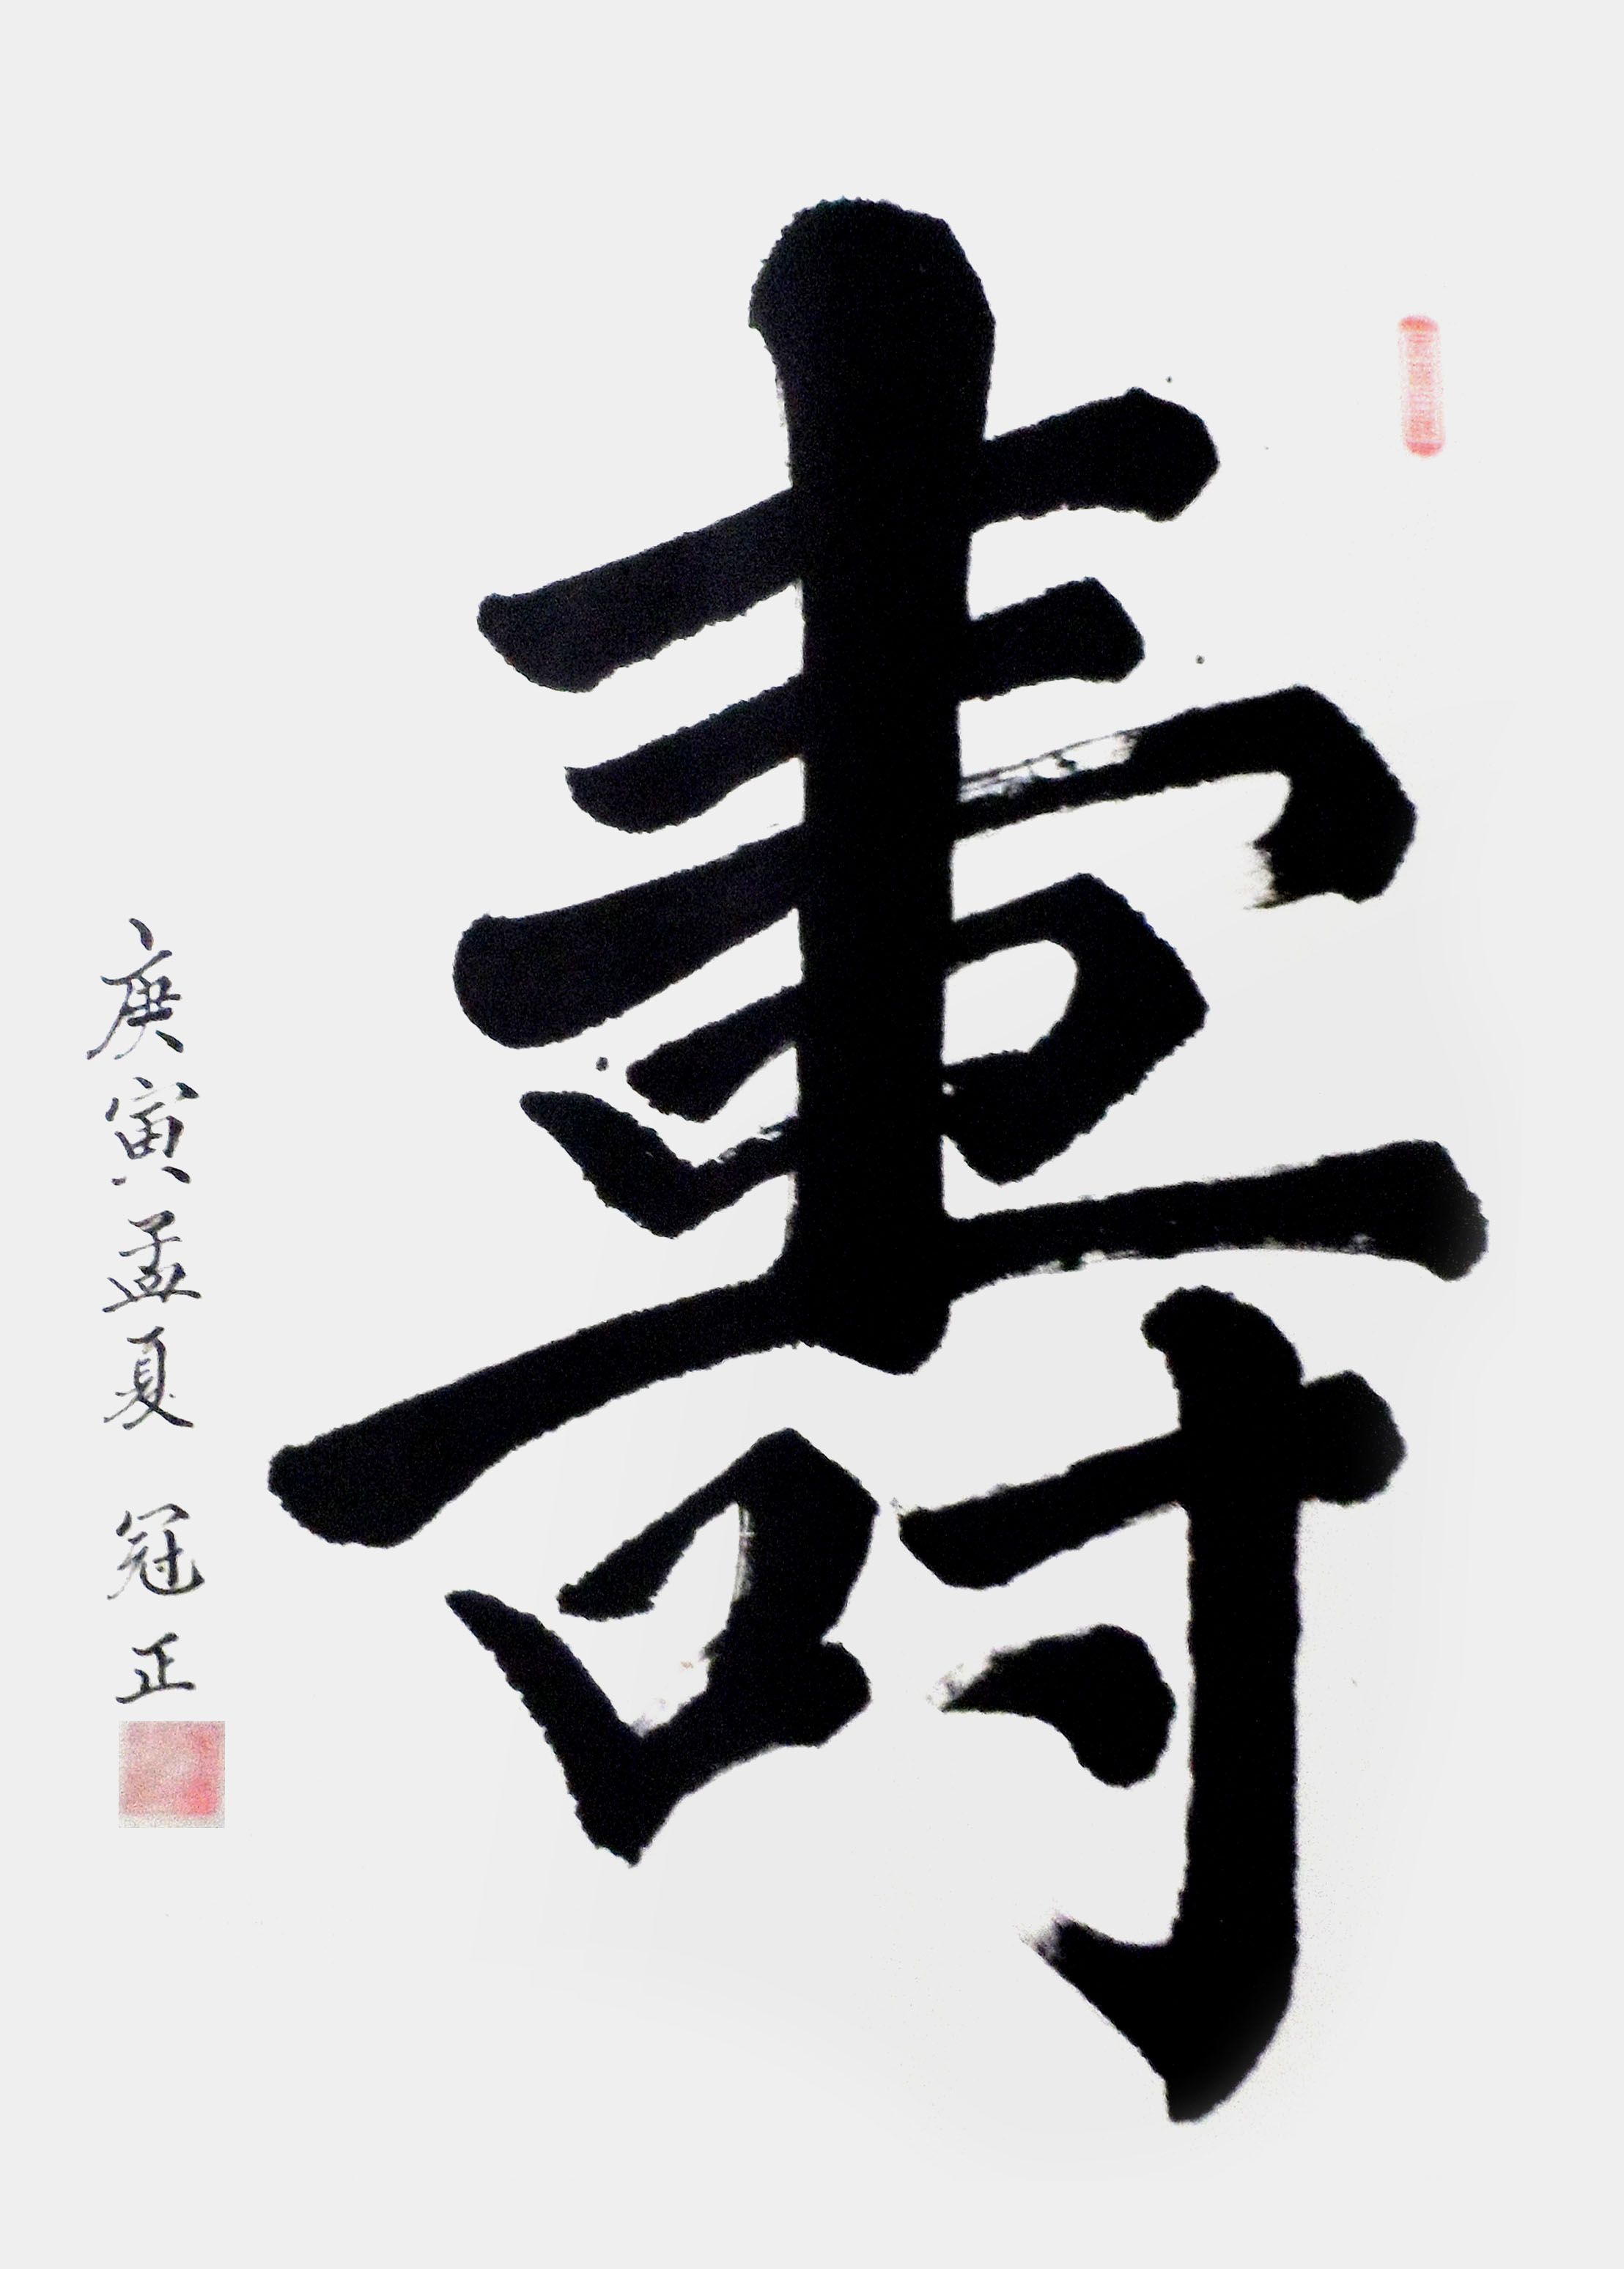 壽
庚寅孟夏 冠正